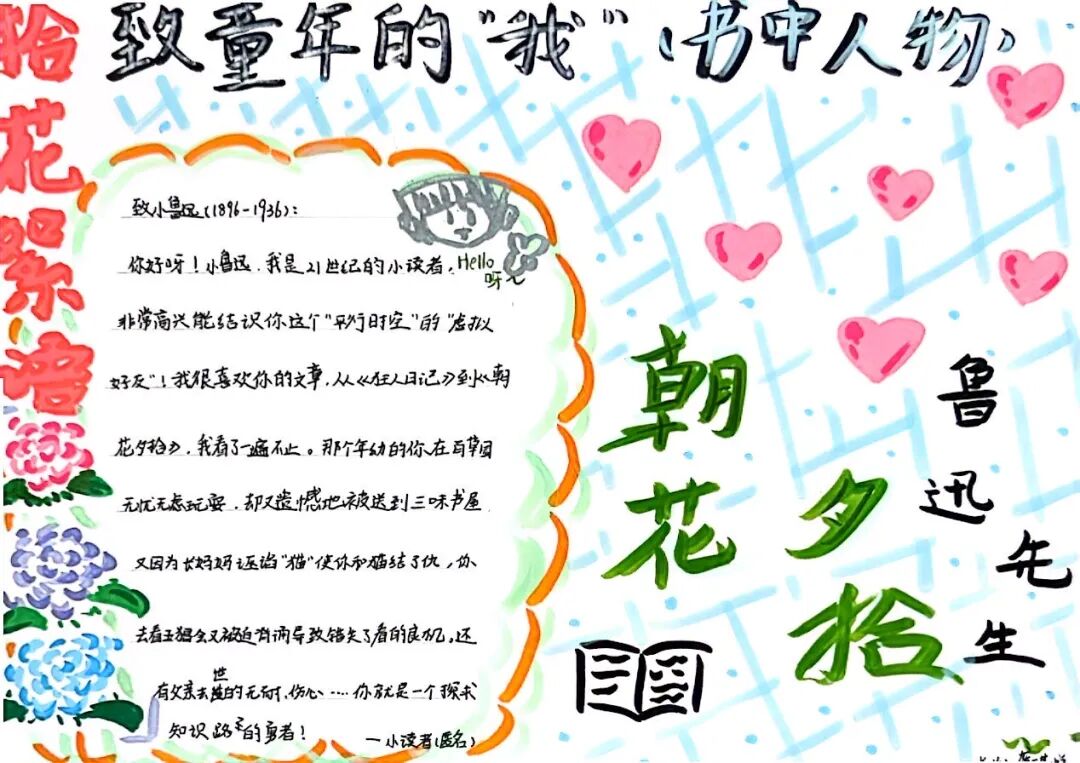 致童年的"我"(书中人物)
拾花絮语
致小鲁迅(1896-1936):
你好呀!小鲁迅,我是21世纪的小读者,
Hello
呀~
非常高兴能结识你这个"平行时空"的"虚拟
好友"!我很喜欢你的文章,从《狂人日记》到《朝
花夕拾》,我看了一遍不止。那个年幼的你,在百草园
无忧无虑玩耍,却又遗憾地被送到三味书屋
又因为长妈妈诬谄"猫"使你和猫结了仇,你
去看五猖会又被迫背诵导致错失了看的良机,还
有父亲去世的无耐,伤心....你就是一个探求
知识路上的勇者!
—小读者(匿名)
朝花
夕拾
鲁迅先生